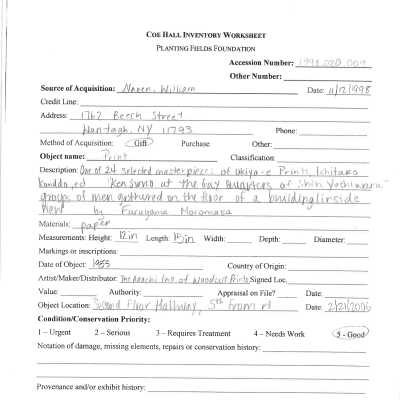 COE HALL INVENTORY WORKSHEET
PLANTING FIELDS FOUNDATION
Accession Number: 1998.020.009
Other Number:
Source of Acquisition: Naren, William Date: 11/12/1998
Credit Line:
Address: 1762 Beech Street
Wantagh, NY 11793 Phone:
Method of Acquisition: Gift Purchase Other:
Object name: Print Classification:
Description: One of 24 selected masterpieces of Ukiyo-e Prints, Ichitaro
Kondo, ed "Scene at the Gay Quarters of Shin Yoshiwara"
group of men gathered on the floor of a building/inside
view by Furuyama Moromasa
Materials: paper
Measurements: Height: 12in Length: 15in Width: Depth: Diameter:
Markings or inscriptions:
Date of Object: 1953 Country of Origin:
Artist/Maker/Distributor: The Adachi Inst. of Woodcut Prints Signed Loc.
Value: Authority: Appraisal on File? Date:
Object Location: Second Floor Hallway, 5th from rt Date: 2/21/2006
Condition/Conservation Priority:
1 – Urgent 2 – Serious 3 – Requires Treatment 4 – Needs Work 5 - Good
Notation of damage, missing elements, repairs or conservation history:
Provenance and/or exhibit history: